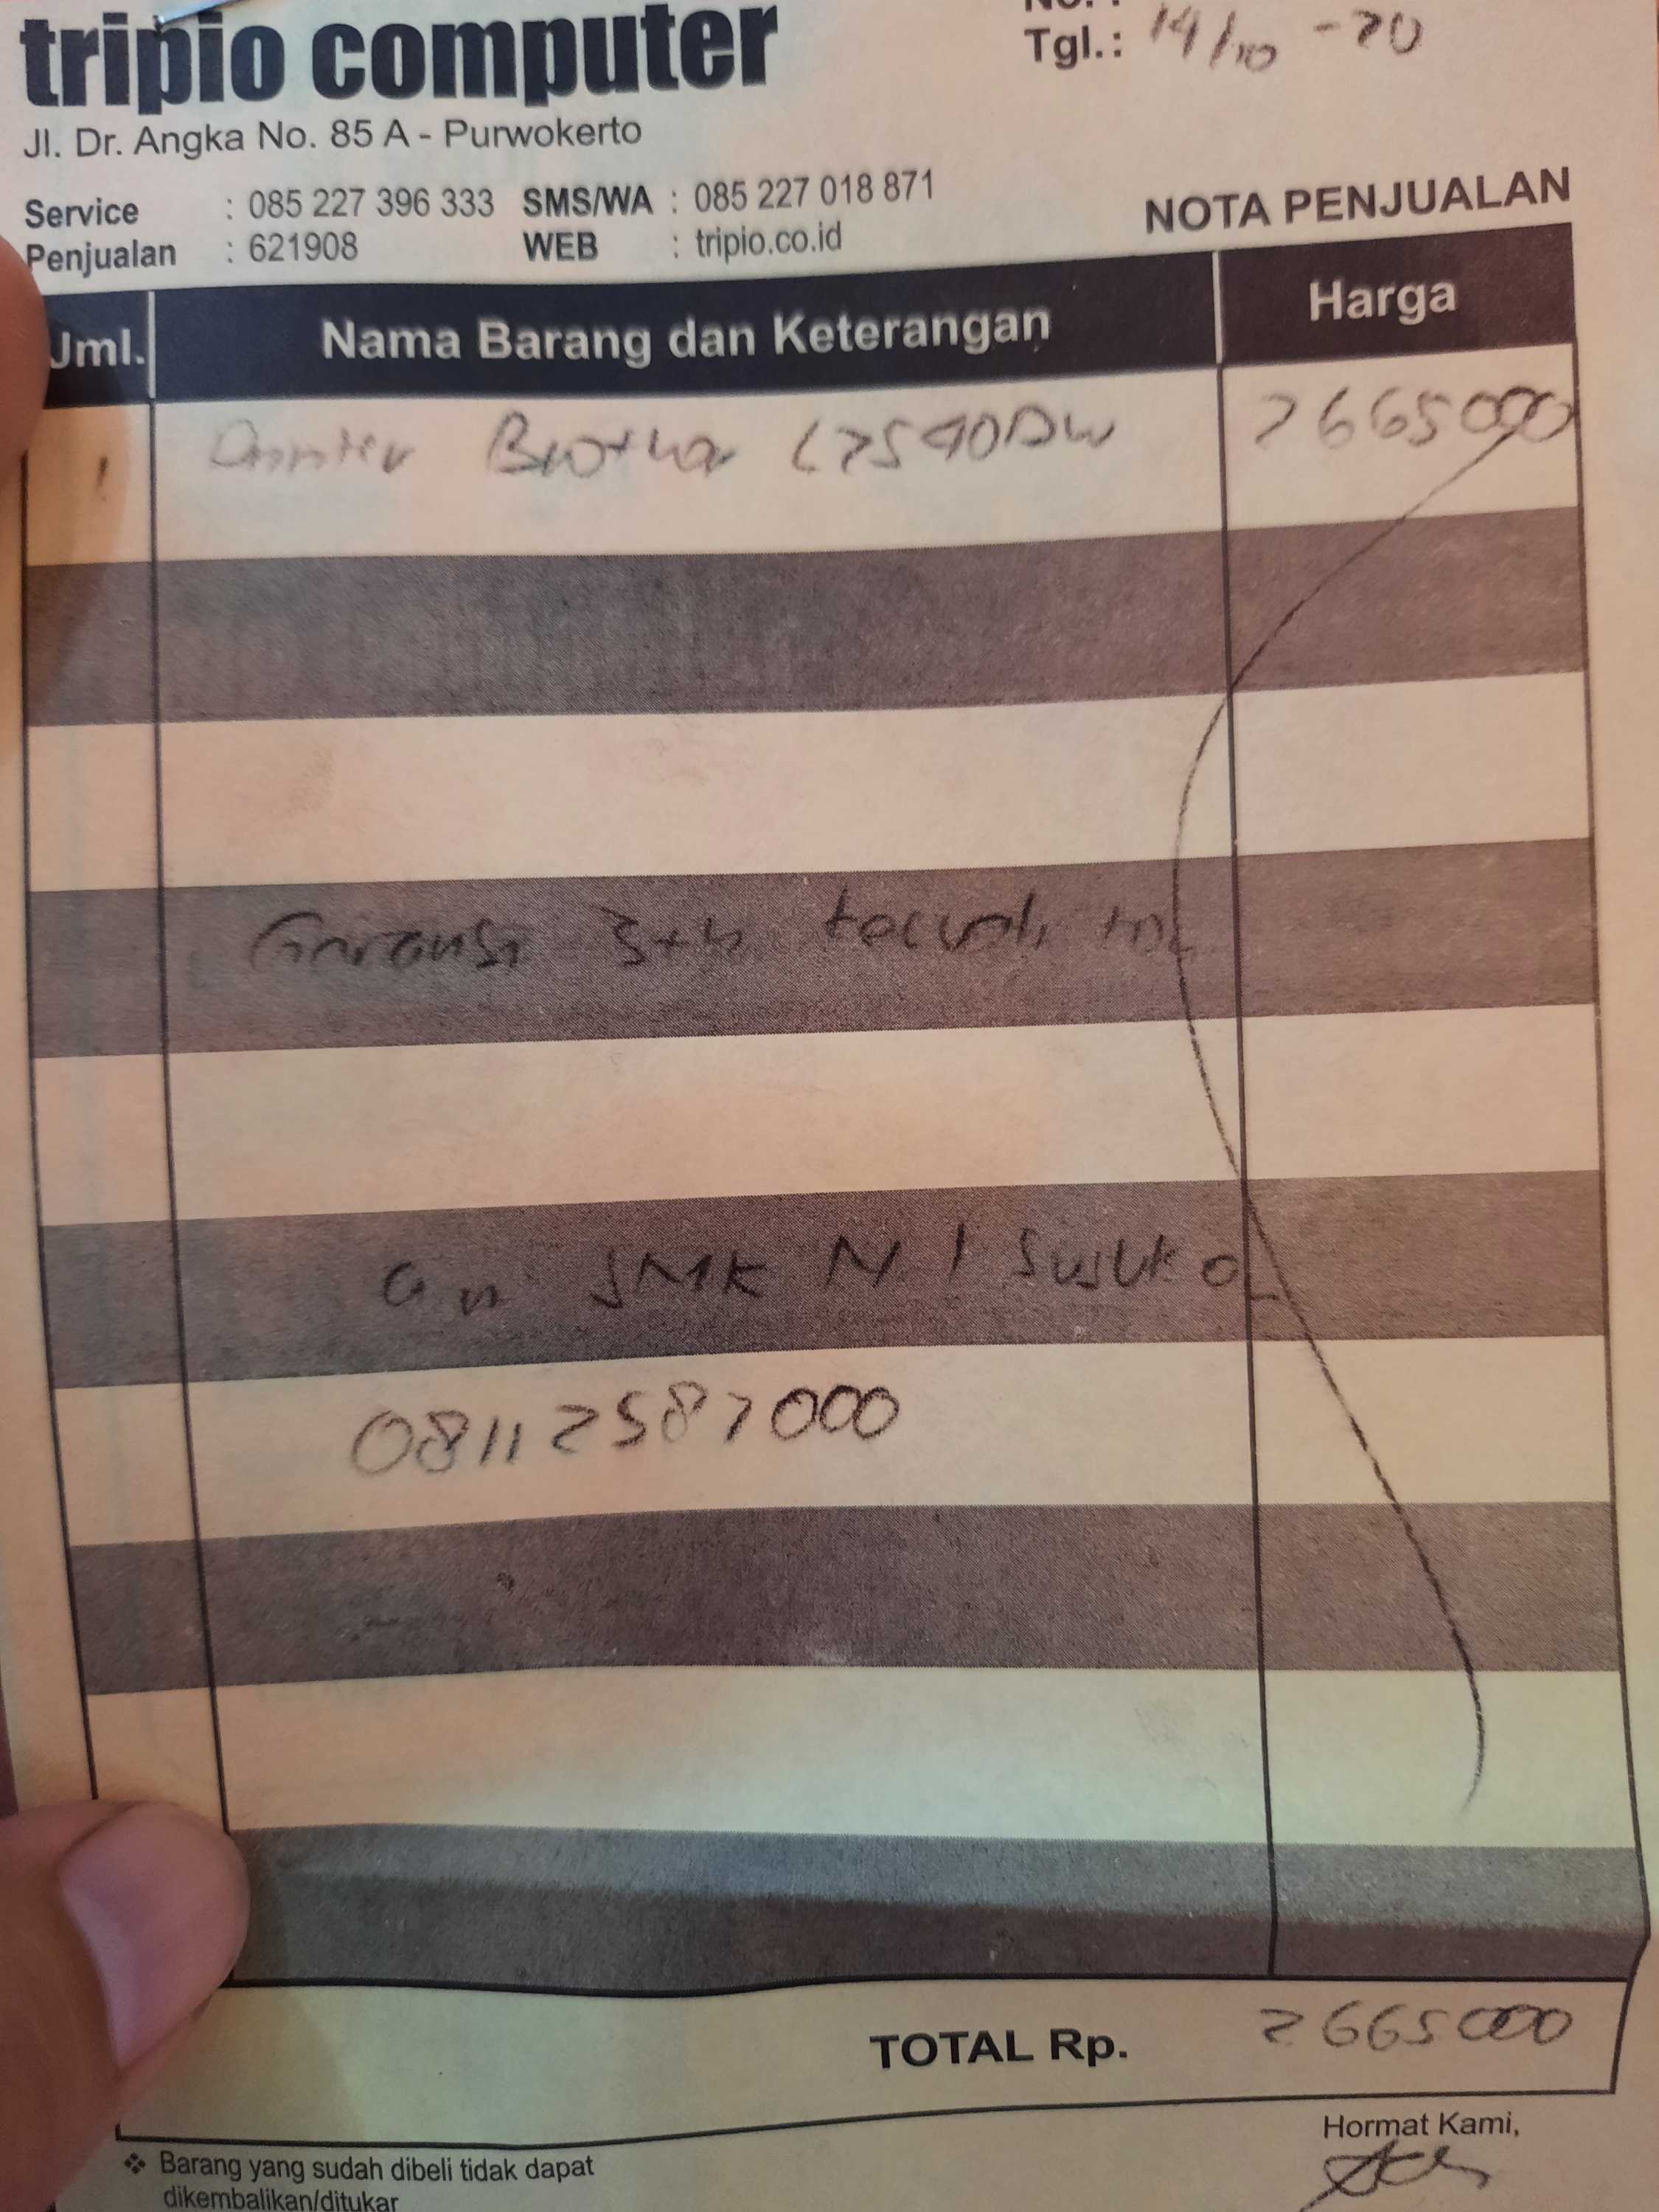 tripio computer
No. :
Tgl.: 14/10 -20
Jl. Dr. Angka No. 85 A - Purwokerto
Service : 085 227 396 333 SMS/WA : 085 227 018 871
Penjualan : 621908 WEB : tripio.co.id
NOTA PENJUALAN
Jml. Nama Barang dan Keterangan Harga
1 Printer Brother L2540DW 2665000
Garansi 3 th kecuali
an SMK N 1 Susukan
08112587000
TOTAL Rp. 2665000
Hormat Kami,
❖ Barang yang sudah dibeli tidak dapat
dikembalikan/ditukar